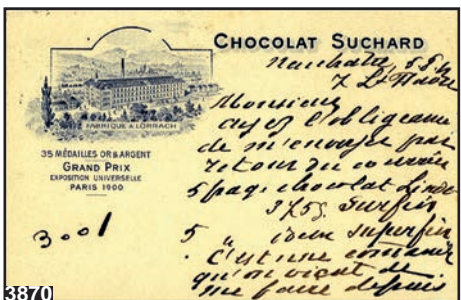 CHOCOLAT SUCHARD
FABRIQUE À LÖRRACH
35 MÉDAILLES OR & ARGENT
GRAND PRIX
EXPOSITION UNIVERSELLE
PARIS 1900
7 
Monsieur
ayez l'obligeance
de m'envoyer par
retour du courrier
5 paq. chocolat
Surfin
5 " idem superfin
c'est une
qu'on vient de
me faire depuis
3001
3870